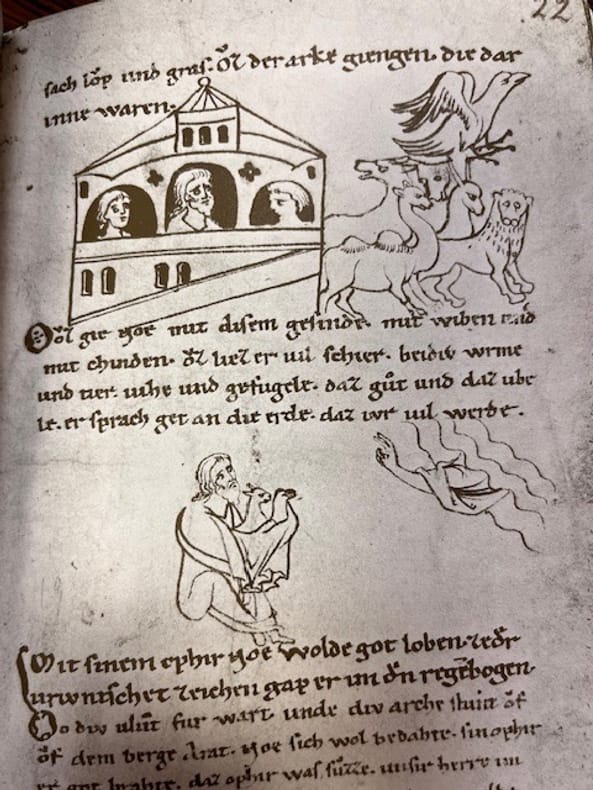 22
sach lǒp und gras. Ǒz der arke giengen. die dar
inne waren.
Ǒz gie Noe mit disem gesinde. mit wiben und
mit chinden. ǒz liez er vil schier. beidiv wrme
und tier. vihe und gefugele. daz gůt und daz ube
le. er sprach get an die erde. daz iwr vil werde.
Mit sinem ophir Noe wolde got loben. zeder
zeichen gap er im den regēbogen.
Do div vlůt fur wart. unde div arche stuint
ǒf dem berge Arat. Noe sich wol bedahte. sin ophir
er got brahte. daz ophir was sůzze. unsir herre im